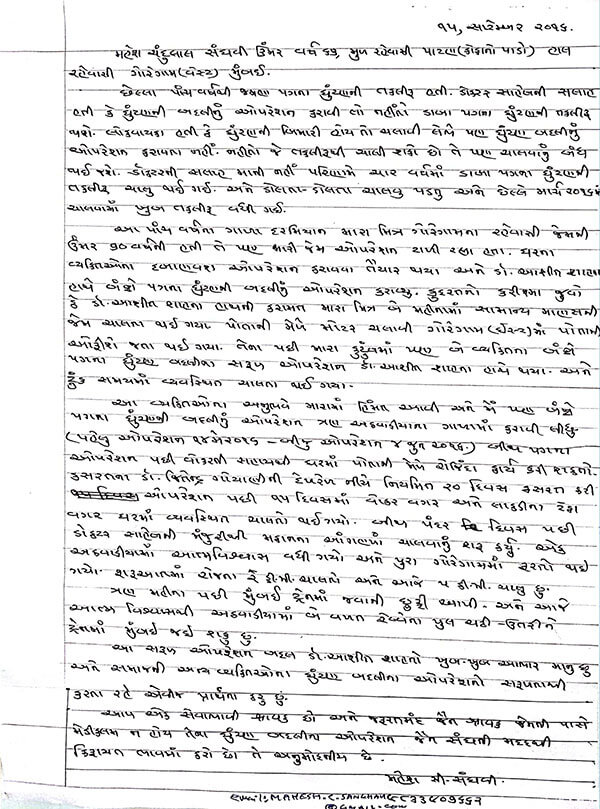 ૧૫, સપ્ટેમ્બર ૨૦૧૬.
મહેશ ચંદુલાલ સંઘવી ઉંમર વર્ષ ૬૬, મુળ રહેવાસી પાટણ(ફોફાનો પાડો) હાલ
રહેવાસી ગોરેગામ(વેસ્ટ) મુંબઈ.
છેલ્લા પાંચ વર્ષથી જમણા પગના ઘુંટણની તકલીફ હતી. ડોક્ટર સાહેબની સલાહ
હતી કે ઘુંટણની બદલીનું ઓપરેશન કરાવી લો નહીંતો ડાબા પગના ઘુંટણની તકલીફ
થશે. લોકવાયકા હતી કે ઘુંટણની બિમારી હોય તો ચલાવી લેવું પણ ઘુંટણ બદલીનું
ઓપરેશન કરાવતા નહીં. નહીંતો જે તકલીફથી ચાલી શકો છો તે પણ ચાલવાનું બંધ
થઈ જશે. ડોક્ટરની સલાહ માની નહીં પરિણામે ચાર વર્ષમાં ડાબા પગના ઘુંટણની
તકલીફ ચાલુ થઈ ગઈ. અને ડોલતા-ડોલતા ચાલવુ પડતુ અને છેલ્લે માર્ચ ૨૦૧૬માં
ચાલવામાં ખુબ તકલીફ વધી ગઈ.
આ પાંચ વર્ષના ગાળા દરમિયાન મારા મિત્ર ગોરેગામના રહેવાસી જેમની
ઉંમર ૭૦ વર્ષની હતી તે પણ મારી જેમ ઓપરેશન ટાળી રહ્યા હતા. ઘરના
વ્યક્તિઓના દબાણવશ ઓપરેશન કરાવવા તૈયાર થયા અને ડો. આશીત શાહના
હાથે બંન્ને પગના ઘુંટણની બદલીનું ઓપરેશન કરાવ્યુ. કુદરતનો કરીશ્મા જુવો
કે ડો. આશીત શાહના હાથની કરામત મારા મિત્ર બે મહીનામાં સામાન્ય માણસની
જેમ ચાલતા થઈ ગયા પોતાની મેળે મોટર ચલાવી ગોરેગામ(ઈસ્ટ)માં પોતાની
ઓફીસે જતા થઈ ગયા. તેના પછી મારા કુટુંબમાં પણ બે વ્યક્તિના બંન્ને
પગના ઘુંટણ બદલીના સફળ ઓપરેશન ડો. આશીત શાહના હાથે થયા. અને
ટુંક સમયમાં વ્યવસ્થિત ચાલતા થઈ ગયા.
આ વ્યક્તિઓના અનુભવે મારામાં હિંમત આવી અને મેં પણ બંન્ને
પગના ઘુંટણની બદલીનું ઓપરેશન ત્રણ અઠવાડીયાના ગાળામાં કરાવી લીધુ.
(પહેલુ ઓપરેશન ૧૪મે ૨૦૧૬ - બીજુ ઓપરેશન ૪ જુન ૨૦૧૬.) બીજા પગના
ઓપરેશન પછી વોકરની સહાયથી ઘરમાં પોતાની મેળે રોજિંદા કાર્ય કરી શકતો.
કસરતના ડો. જિતેન્દ્ર ની દેખરેખ નીચે નિયમિત ૨૦ દિવસ કસરત કરી
ઓપરેશન પછી ૧૫ દિવસમાં વોકર વગર અને લાકડીના ટેકા
વગર ઘરમાં વ્યવસ્થિત ચાલતો થઈ ગયો. બીજા પંદર દિવસ પછી
ડોક્ટર સાહેબની મંજુરીથી મકાનના આંગણામાં ચાલવાનું શરૂ કર્યુ. એક
અઠવાડીયામાં આત્મવિશ્વાસ વધી ગયો અને પુરા ગોરેગામમાં ફરતો થઈ
ગયો. શરૂઆતમાં રોજના ૨ કી.મી. ચાલતો અને આજે ૫ કી.મી. ચાલુ છુ.
ત્રણ મહીના પછી મુંબઈ ટ્રેનમાં જવાની છુટ્ટી આપી. અને આજે
આત્મ વિશ્વાસથી અઠવાડીયામાં બે વખત રેલ્વેના પુલ ચઢી-ઉતરીને
ટ્રેનમાં મુંબઈ જઈ શકુ છુ.
આ સફળ ઓપરેશન બદલ ડો. આશીત શાહનો ખુબ-ખુબ આભાર માનુ છુ
અને સમાજની અન્ય વ્યક્તિઓના ઘુંટણ બદલીના ઓપરેશનો સફળતાથી
કરતા રહે એવીજ પ્રાર્થના કરુ છુ.
આપ એક સેવાભાવી શ્રાવક છો અને જરૂરતમંદ જૈન શ્રાવક જેમની પાસે
મેડીક્લેમ ન હોય તેવા ઘુંટણ બદલીના ઓપરેશન જૈન સંઘની મદદથી
કિફાયત ભાવમાં કરો છો તે અનુમોદનીય છે.
મહેશ સી. સંઘવી.
@GMAIL.COM